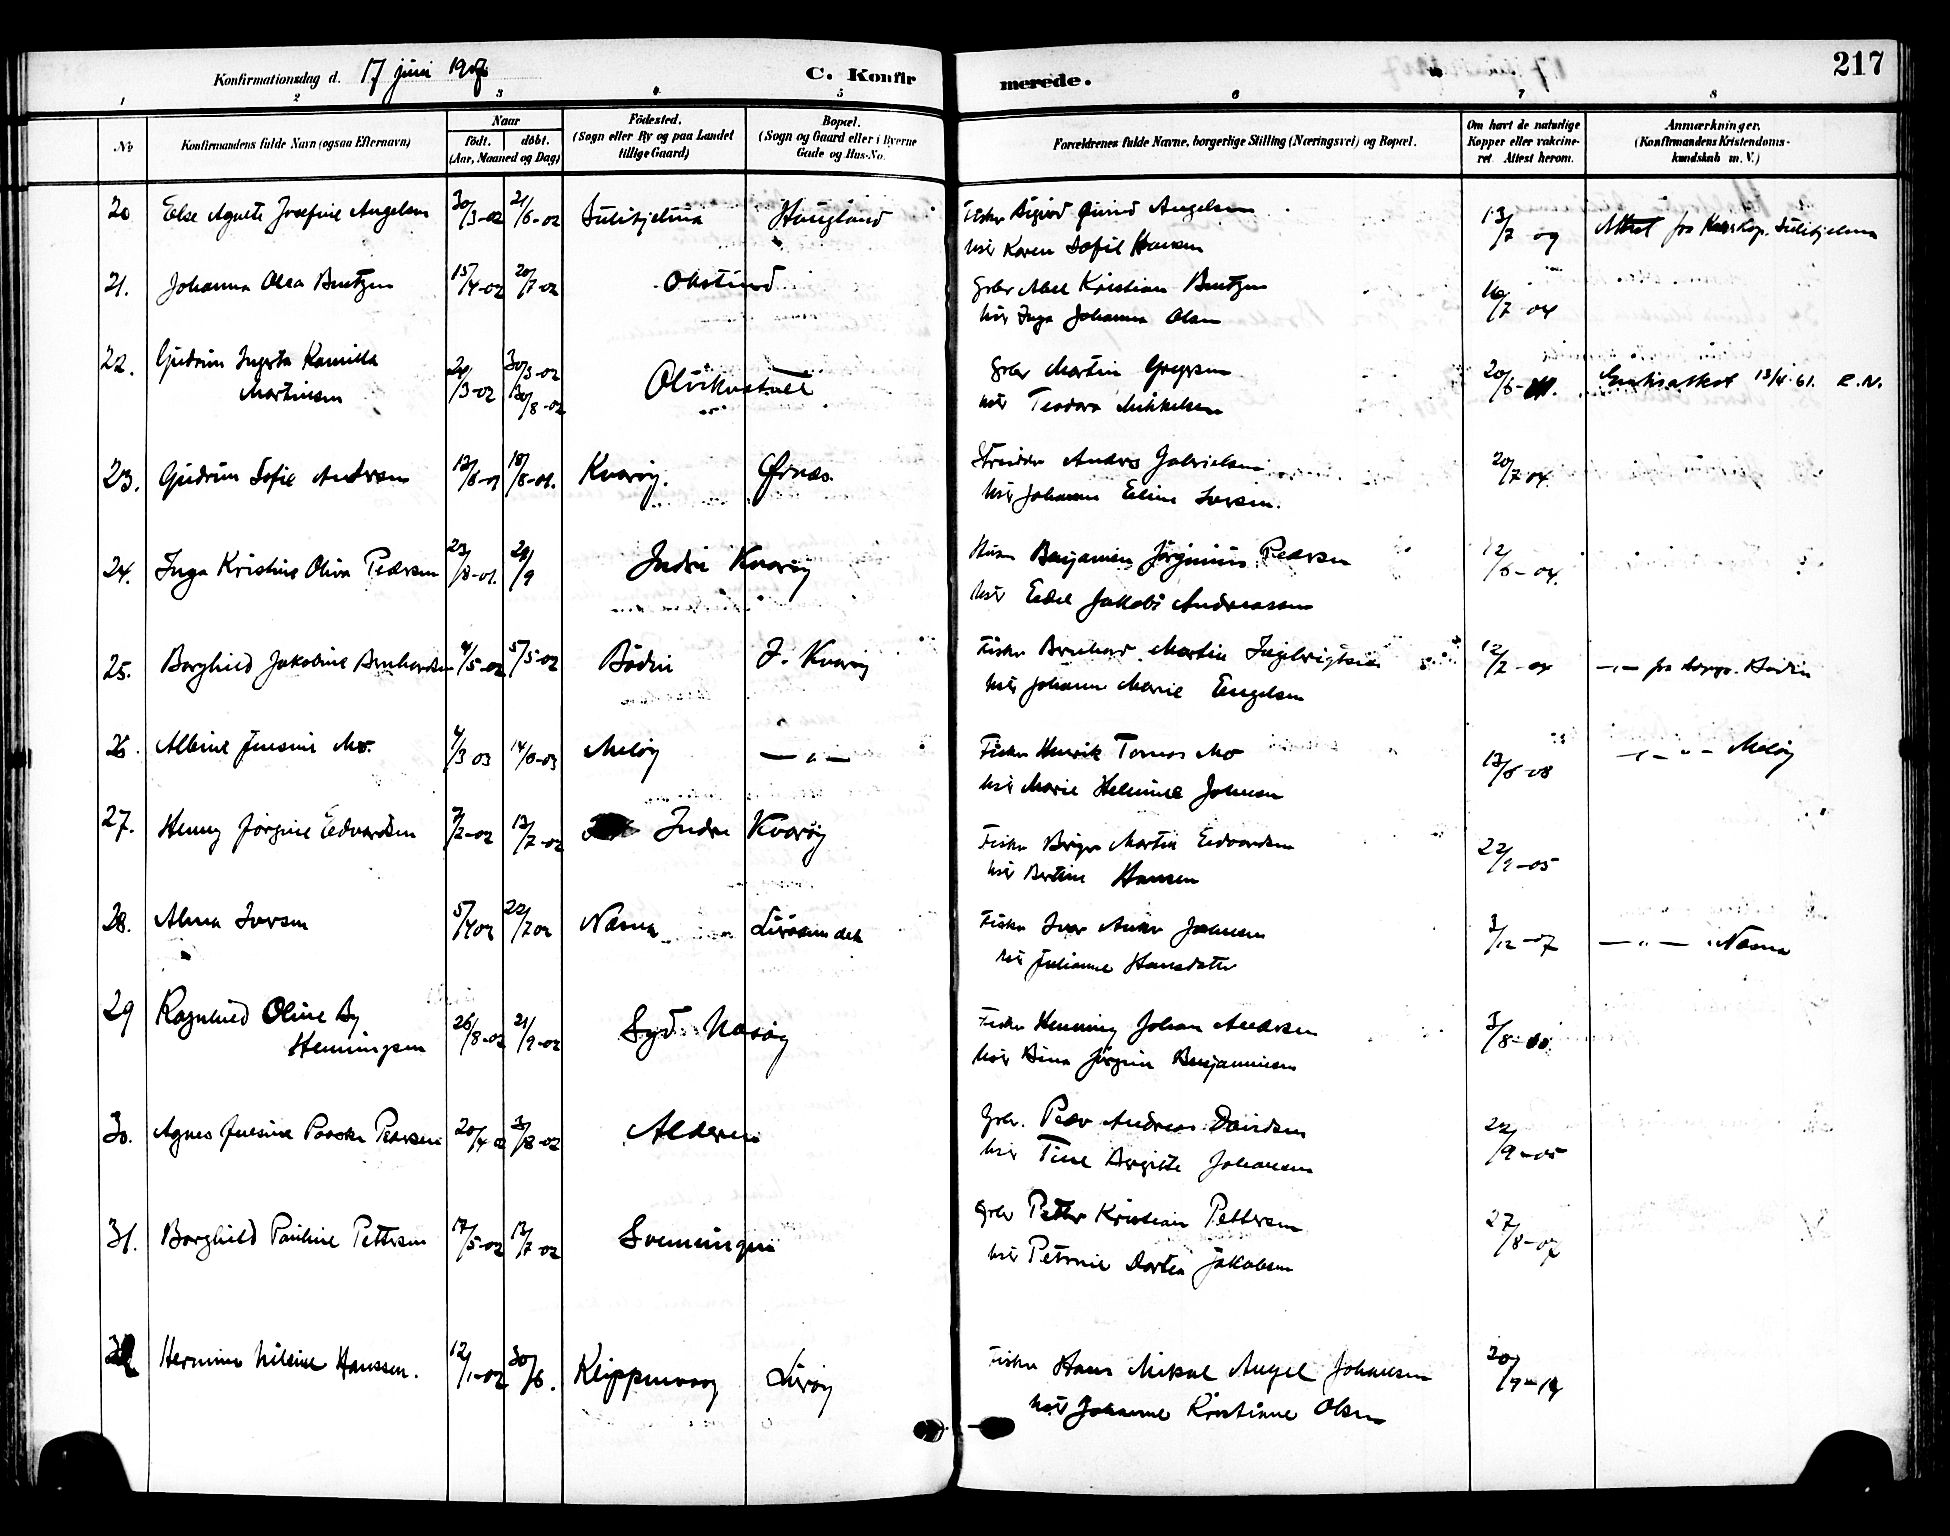 Konfirmationsdag d. 17 juni 1917
C. Konfir
merede.
217
1 2 3 4 5 6 7 8
No
Konfirmandens fulde Navn (ogsaa Efternavn)
Naar
født. døbt.
(Aar, Maaned og Dag)
Fødested.
(Sogn eller By og paa Landet
tillige Gaard)
Bopæl.
(Sogn og Gaard eller i Byerne
Gade og Hus-No.
Forældrenes fulde Navne, borgerlige Stilling (Næringsvei) og Bopæl.
Om havt de naturlige
Kopper eller vakcine-
ret Attest herom.
Anmærkninger.
(Konfirmandens Kristendoms-
kundskab m. V.)
20 Else Agnete Josefine Angelsen 30/3-02 21/6-02 Sulitjelma Haugland Fisker Sigurd Angelsen 13/7 09 Attest fra Sulitjelma
hstr Karen Sofie Hansen
21. Johanna Olea Bentzen 15/4-02 20/7-02 Okstind Grbr Abel Kristian Bentzen 16/7 04
hstr Inga Johanna Olsen
22. Gudrun Ingerta Kamilla 24/3-02 30/3-02 Olvikvatnet Grbr Martin Gregersen 20/6 13/4-61. E.N.
Martinsen 30/8-02 hstr Teodora Mikkelsen
23. Gudrun Sofie Andersen 12/6-01 18/8-01. Kvarøy. Ørnæs. Anders Gabrielsen 20/7 04.
hstr Johanna Eline Iversen.
24. Inga Kristine Oliva Pedersen 23/8-01. 29/9 Indre Kvarøy Benjamin Jørginius Pedersen 12/6-04.
hstr Edel Jakobe Andreassen
25. Borghild Jakobine Bernhardsen 4/5-02 5/5-02 Bodin I. Kvarøy Fisker Bernhard Martin Ingebrigtsen 12/7-04 -"- fra Bodin
hstr Johanna Marie Engelsen
26. Albine Jensine Mo. 4/3 03 14/6-03 Meløy -"- Fisker Henrik Tomas Mo 13/6-08 -"- "- Meløy
hstr Marie Helmine Johnsen
27. Henny Jørgine Edvardsen 2/2-02 13/7-02 Indre Kvarøy Fisker Birger Martin Edvardsen 22/9-05
hstr Bertine Hansen
28. Alma Iversen 5/4 02 22/7 02 Næsna Lurøsundet Fisker Ivar Anker Johansen 3/12-07 -"- Næsna
hstr Julianne Hansdatter
29 Ragnhild Oline By 26/8-02 21/9-02 Syd Næsøy Fisker Henning Johan Andersen 3/8
Henningsen hstr Dina Jørgine Benjaminsen
30. Agnes Jensine Paaske Pedersen 20/4 02 3/8-02 Alderen Grbr. Peder Andreas Davidsen 22/9-05
hstr Tine Bergitte Johansen
31. Borghild Pauline Pettersen 17/5-02 13/7-02 Svenningen Grbr Petter Kristian Pettersen 27/8-07
hstr Petrine Dortea Jakobsen
32 Hermine Nilsine Hanssen. 12/1-02 30/6. Klippenvaag Lurøy Fisker Hans Mikal Angel Johansen 20/9-14
hstr Johanne Kristianne Olsen